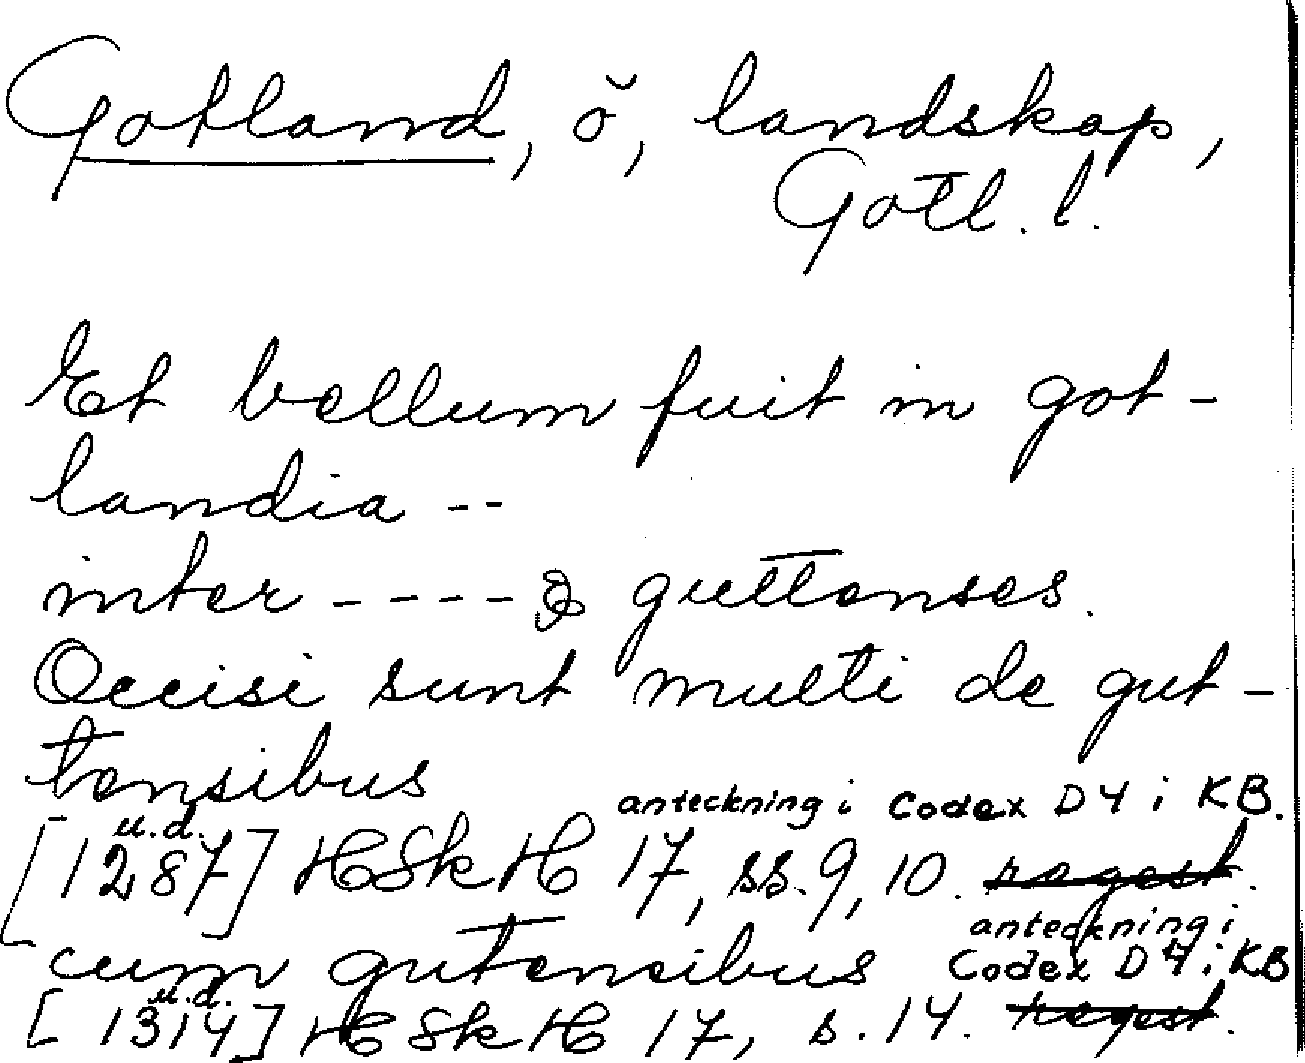 Gotland, ö, landskap,
Gotl. l.
Et bellum fuit in got-
landia --
inter ---- & guttenses.
Occisi sunt multi de gut-
tensibus
anteckning i Codex D4 i KB.
u.d.
[1287] HSkH 17, ss. 9, 10. regest.
anteckning i
cum gutensibus Codex D4 i KB
u.d.
[1314] HSkH 17, s. 14. regest.